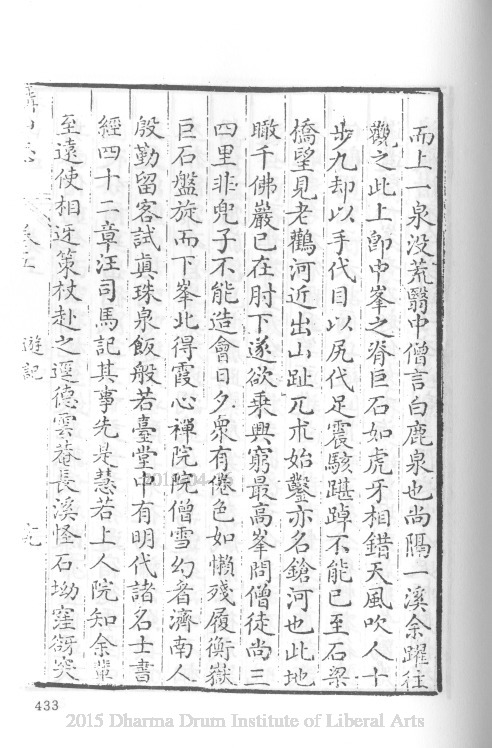 而上一泉没荒翳中僧言白鹿泉也尚隔一溪余躍往
觀之此上即中峯之脊巨石如虎牙相錯天風吹人十
步九却以手代目以尻代足震駭踸踔不能已至石梁
橋望見老鸛河近出山趾兀朮始鑿亦名鎗河也此地
瞰千佛巖已在肘下遂欲乘興窮最高峯問僧徒尚三
四里非兜子不能造會日夕衆有倦色如懶殘履衡嶽
巨石盤旋而下峯北得霞心禪院院僧雪幻者濟南人
殷勤留客試眞珠泉飯般若臺堂中有明代諸名士書
經四十二章汪司馬記其事先是慧若上人院知余輩
至遠使相迓策杖赴之逕德雲菴長溪怪石坳窪谺突
遊記
433
2015 Dharma Drum Institute of Liberal Arts